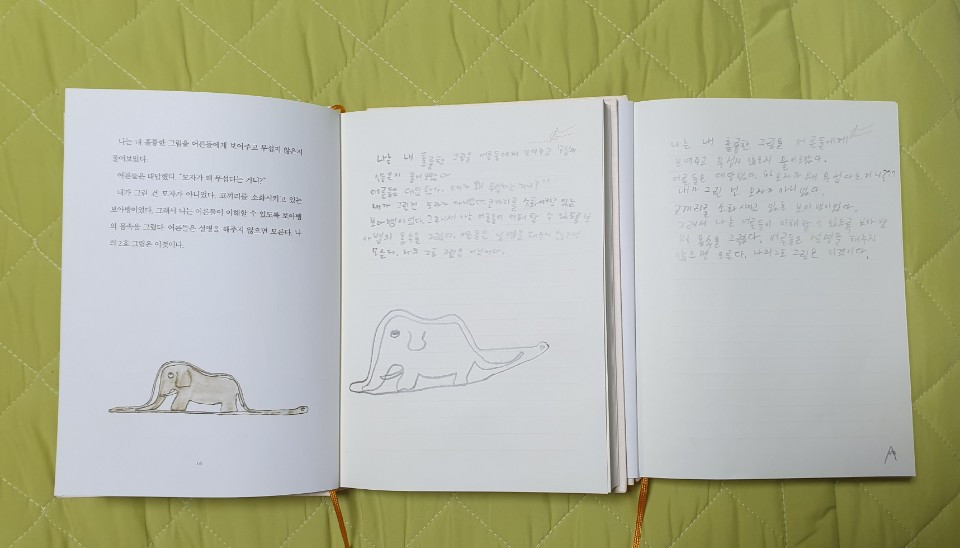 나는 내 훌륭한 그림을 어른들에게 보여주고 무섭지 않은지
물어보았다.
어른들은 대답했다. "모자가 왜 무섭다는 거니?"
내가 그린 건 모자가 아니었다. 코끼리를 소화시키고 있는
보아뱀이었다. 그래서 나는 어른들이 이해할 수 있도록 보아뱀
의 몸속을 그렸다. 어른들은 설명을 해주지 않으면 모른다. 나
의 2호 그림은 이것이다.
나는 내 훌륭한 그림을 어른들에게 보여주고
않은지 물어보았다
어른들은 대답했다. 왜 거니?"
내가 그린건 모자가 아니었다 코끼리를 있는
보아뱀이었다. 그래서 나는 어른들이 이해할 수 있도록 보
아뱀의 몸속을 그렸다. 어른들은 설명을 해주지 않으면
모른다. 나의 2호 그림은 이것이다.
나는 내 훌륭한 그림을 어른들에게
보여주고 무섭지 않은지 물어보았다.
어른들은 대답했다. "모자가 왜 무섭다는 거니?"
내가 그린 건 모자가 아니었다.
코끼리를 소화시키고 있는 보아뱀이었다.
그래서 나는 어른들이 이해할 수 있도록 보아뱀
의 몸속을 그렸다. 어른들은 설명을 해주지
않으면 모른다. 나의 2호 그림은 이것이다.
A